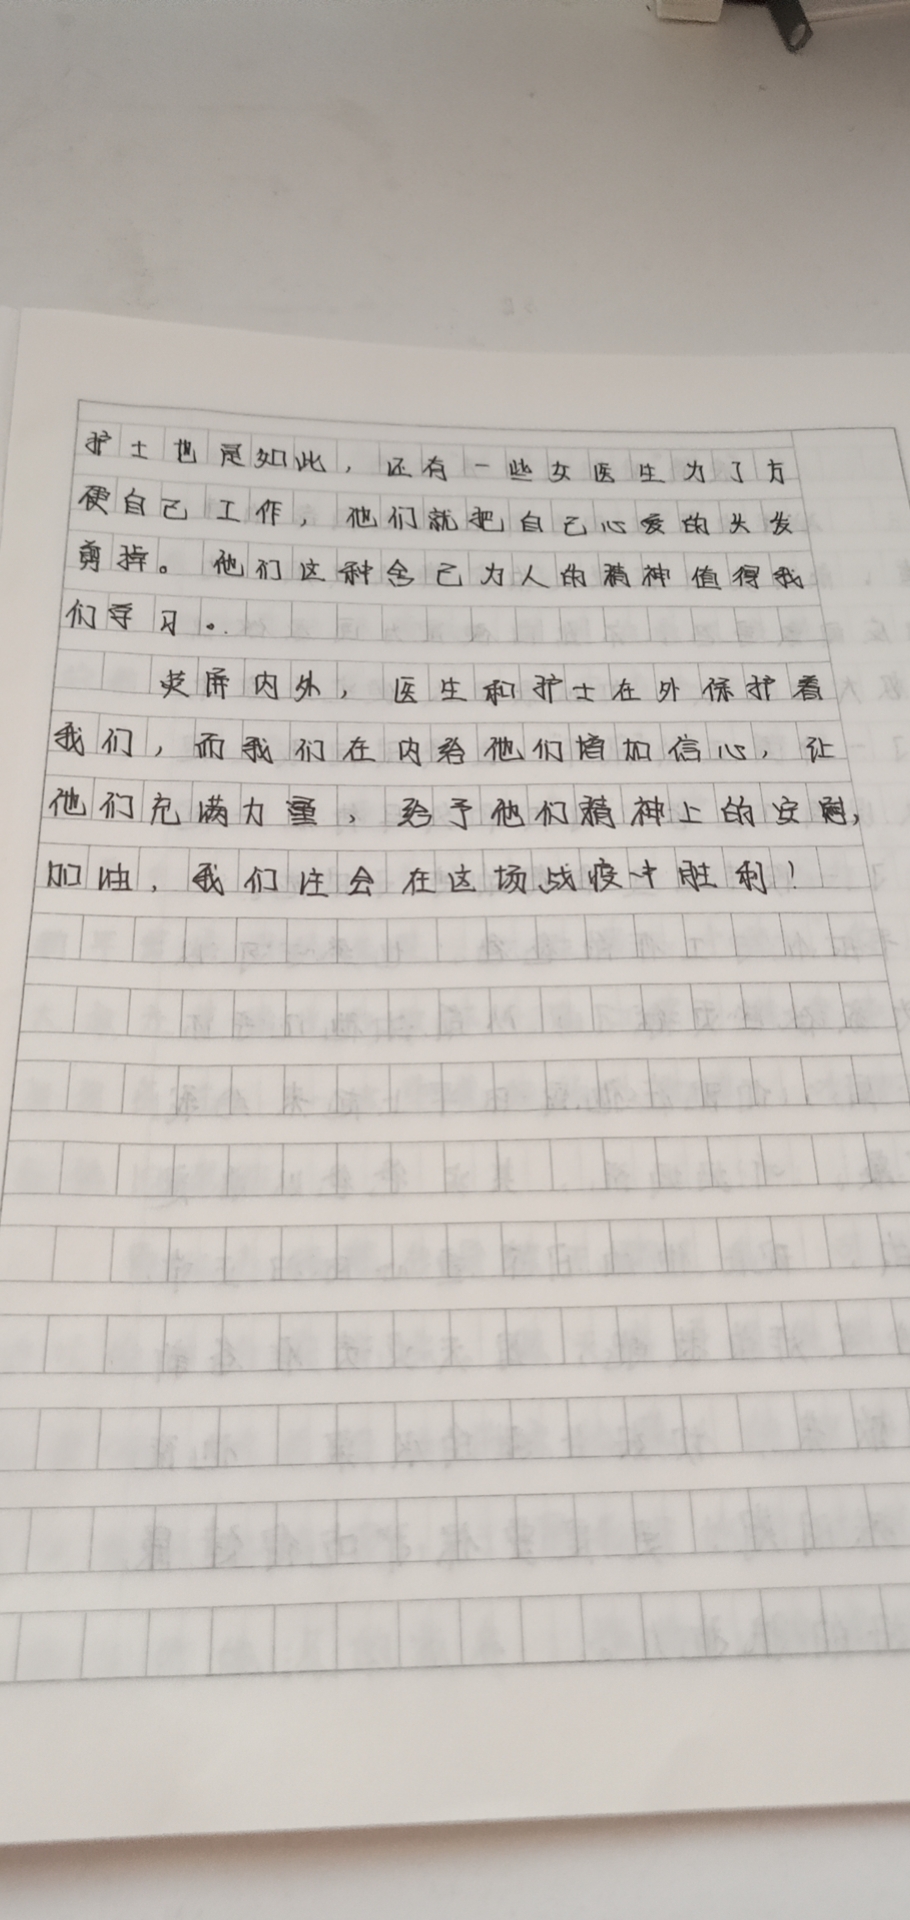 护士也是如此，还有一些女医生为了方
便自己工作，他们就把自己心爱的头发
剪掉。他们这种舍己为人的精神值得我
们学习。
荧屏内外，医生和护士在外保护着
我们，而我们在内给他们增加信心，让
他们充满力量，给予他们精神上的安慰，
加油，我们注会在这场战疫中胜利！